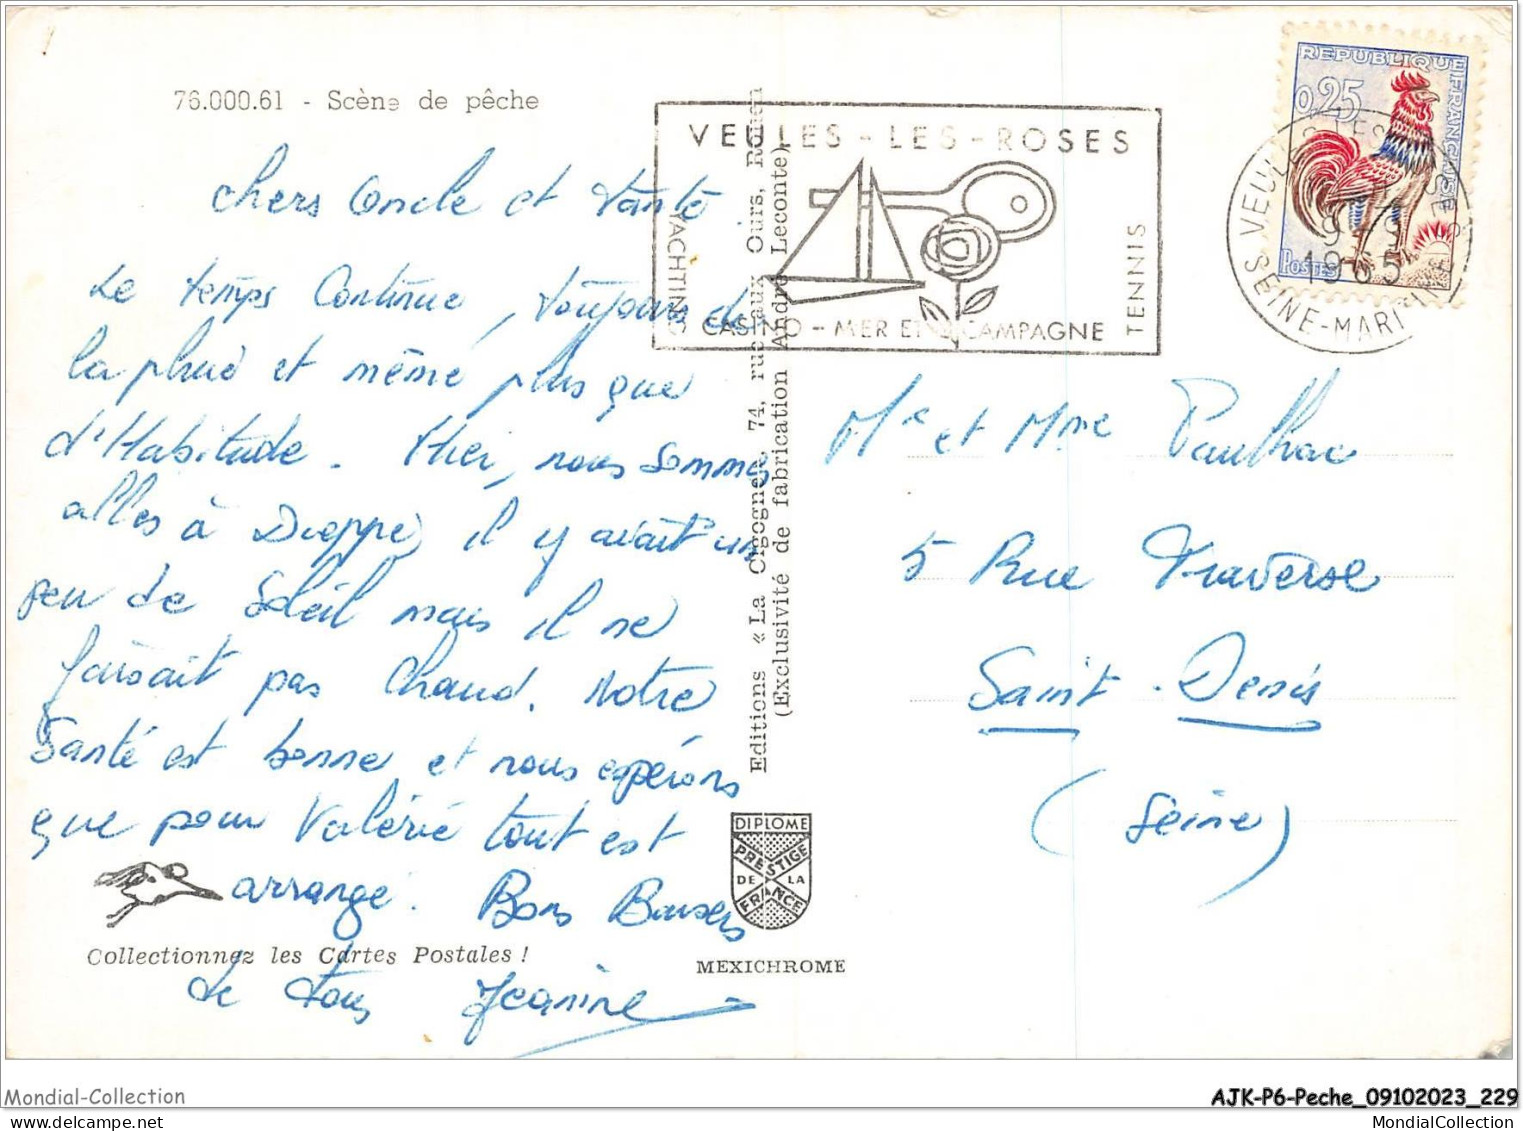 76.000.61 - Scène de pêche
chers Oncle et Tante
Le temps Continue, toujours de
la pluie et même plus que
d'Habitude. Hier, nous sommes
allés à Dieppe, il y avait un
peu de soleil mais il ne
faisait pas chaud. Notre
Santé est bonne et nous espérons
que pour Valérie tout est
arrangé. Bons Baisers
de tous Jeanine
Collectionnez les Cartes Postales !
Editions « La Cigogne », 74, rue aux Ours, Rouen
(Exclusivité de fabrication André Leconte)
DIPLOME
PRESTIGE
DE LA
FRANCE
MEXICHROME
VEULES - LES - ROSES
YACHTING
TENNIS
CASINO - MER ET CAMPAGNE
REPUBLIQUE FRANÇAISE
0,25
POSTES
VEULES LES ROSES
9-9
1965
SEINE-MARITIME
Mr et Mme Paulhac
5 Rue Traverse
Saint-Denis
(Seine)
Mondial-Collection
AJK-P6-Peche_09102023_229
Mondial-Collection
MondialCollection